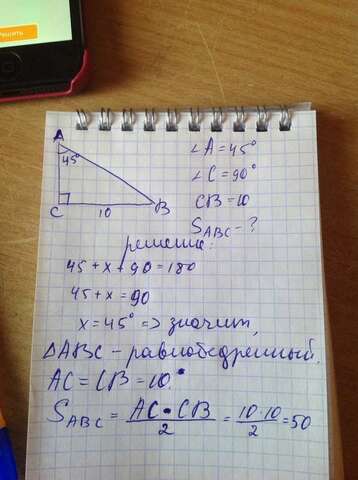 Решить
A
45°
C 10 B
∠A=45°
∠C=90°
CB=10
S ABC - ?
решение:
45 + x + 90 = 180
45 + x = 90
x = 45° => значит,
△ABC - равнобедренный.
AC = CB = 10.
S ABC = AC • CB / 2 = 10·10 / 2 = 50